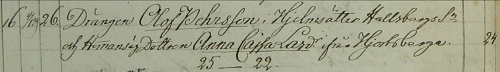 16 26. Drängen Olof Pehrsson, Hjelmsätter Hallsbergs Sn
och Hemmansäg. Dottren Anna Cajsa Larsd. ifrån Hjortsberga. 24
25 — 22.